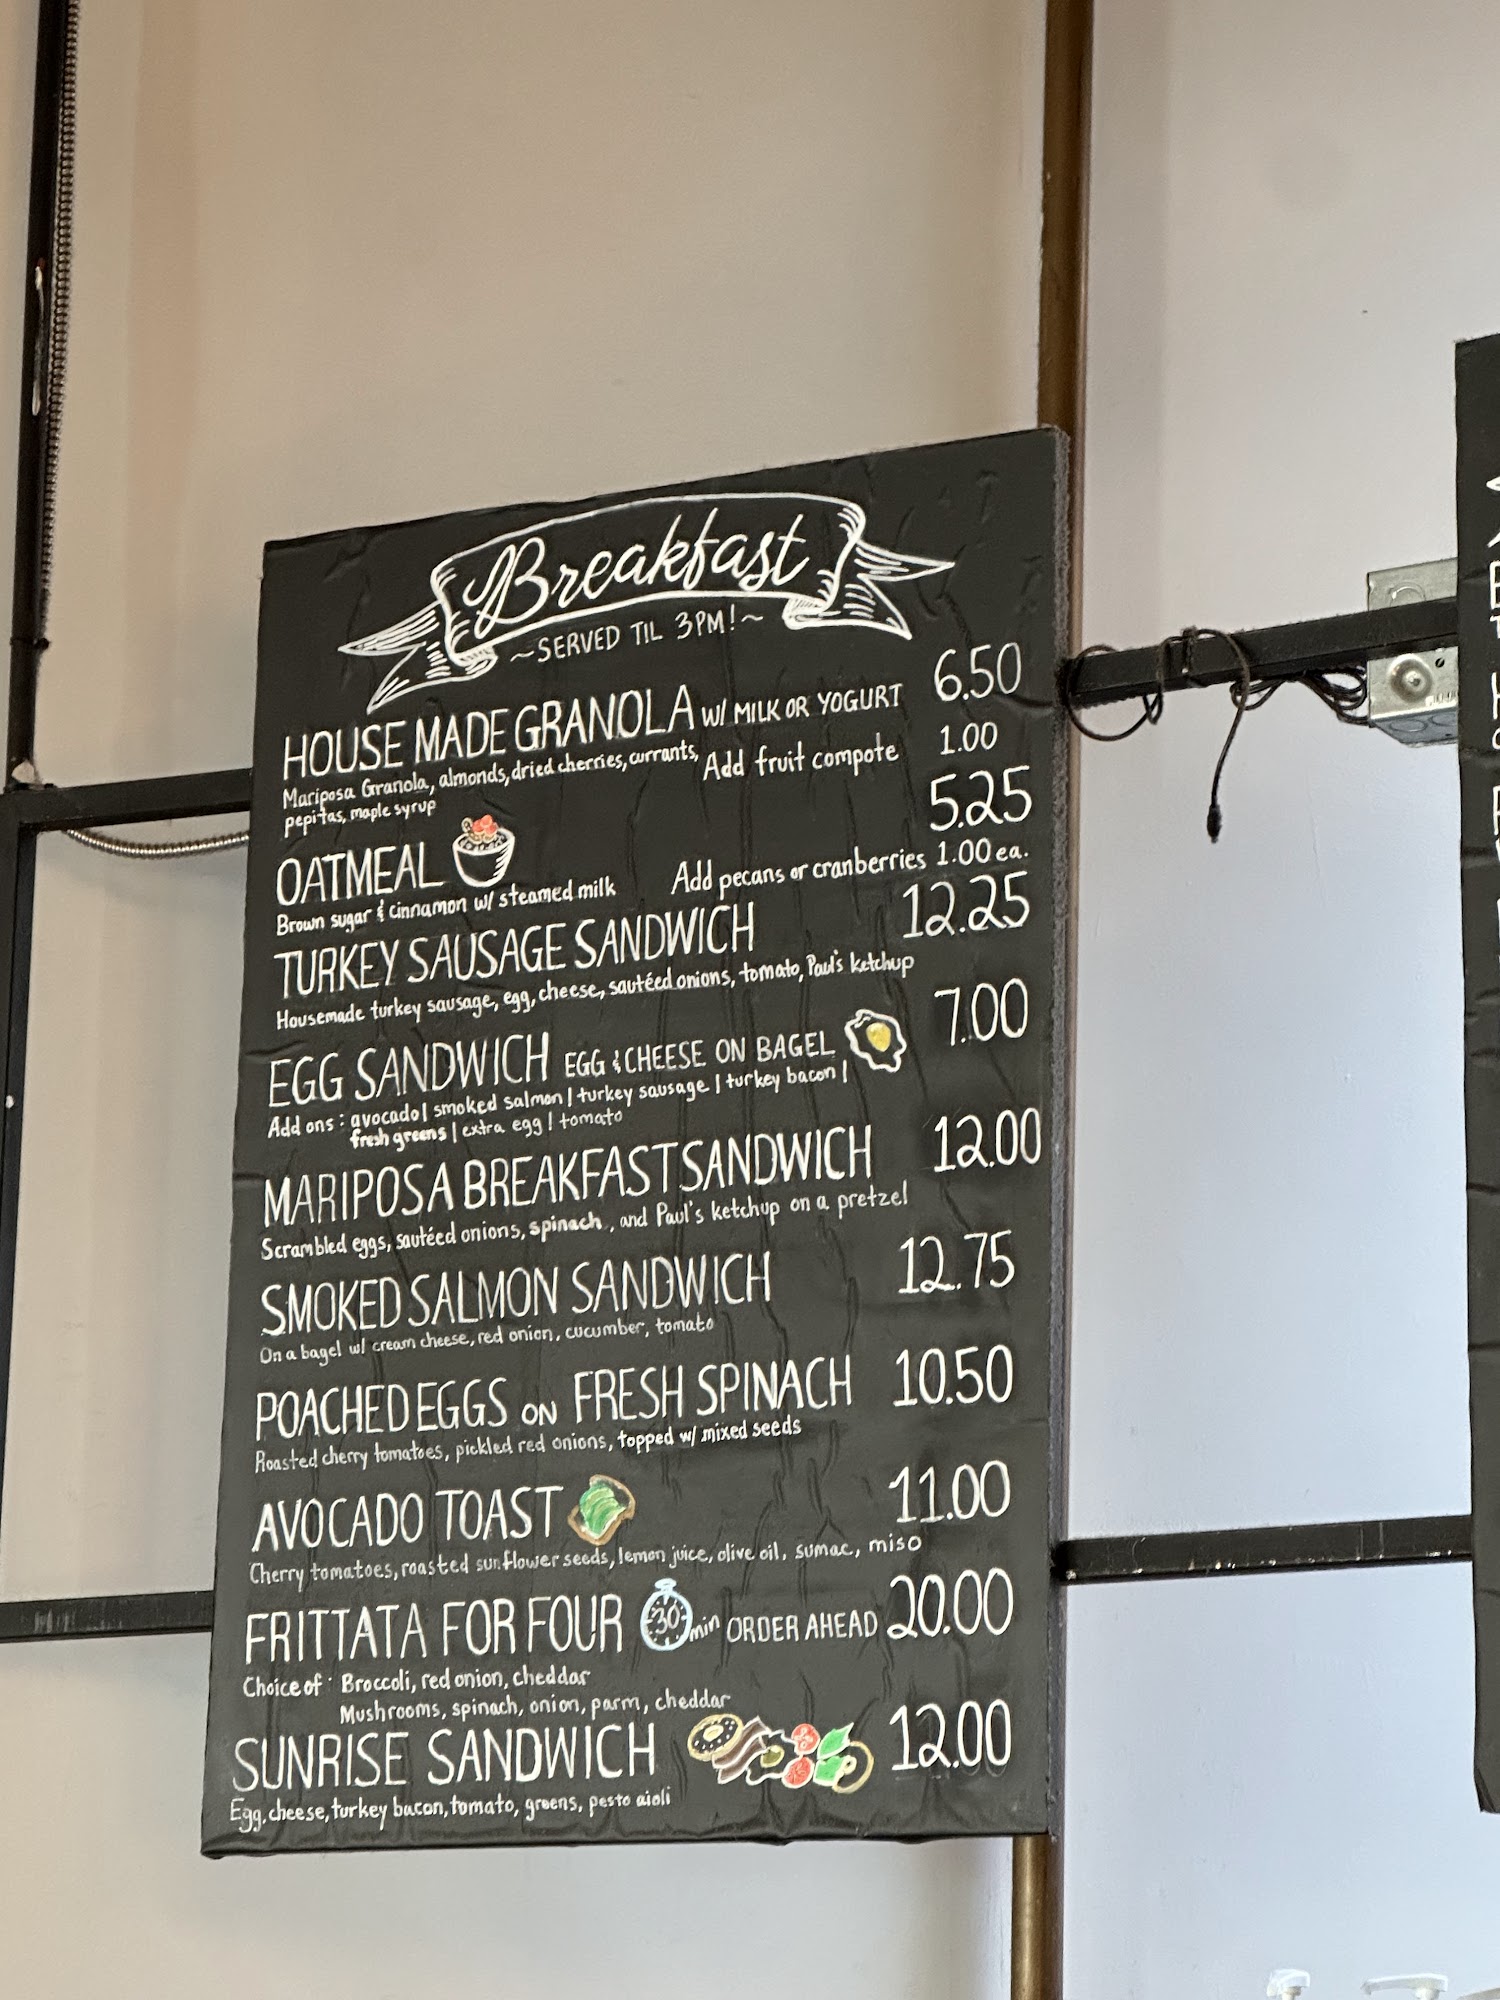 Breakfast
~SERVED TIL 3PM!~
HOUSE MADE GRANOLA W/ MILK OR YOGURT 6.50
Mariposa Granola, almonds, dried cherries, currants, Add fruit compote 1.00
pepitas, maple syrup
OATMEAL 5.25
Brown sugar & cinnamon w/ steamed milk Add pecans or cranberries 1.00 ea.
TURKEY SAUSAGE SANDWICH 12.25
Housemade turkey sausage, egg, cheese, sautéed onions, tomato, Paul's ketchup
EGG SANDWICH EGG & CHEESE ON BAGEL 7.00
Add ons: avocado | smoked salmon | turkey sausage | turkey bacon |
fresh greens | extra egg | tomato
MARIPOSA BREAKFAST SANDWICH 12.00
Scrambled eggs, sautéed onions, spinach, and Paul's ketchup on a pretzel
SMOKED SALMON SANDWICH 12.75
On a bagel w/ cream cheese, red onion, cucumber, tomato
POACHED EGGS ON FRESH SPINACH 10.50
Roasted cherry tomatoes, pickled red onions, topped w/ mixed seeds
AVOCADO TOAST 11.00
Cherry tomatoes, roasted sunflower seeds, lemon juice, olive oil, sumac, miso
FRITTATA FOR FOUR 30 min ORDER AHEAD 20.00
Choice of: Broccoli, red onion, cheddar
Mushrooms, spinach, onion, parm, cheddar
SUNRISE SANDWICH 12.00
Egg, cheese, turkey bacon, tomato, greens, pesto aioli